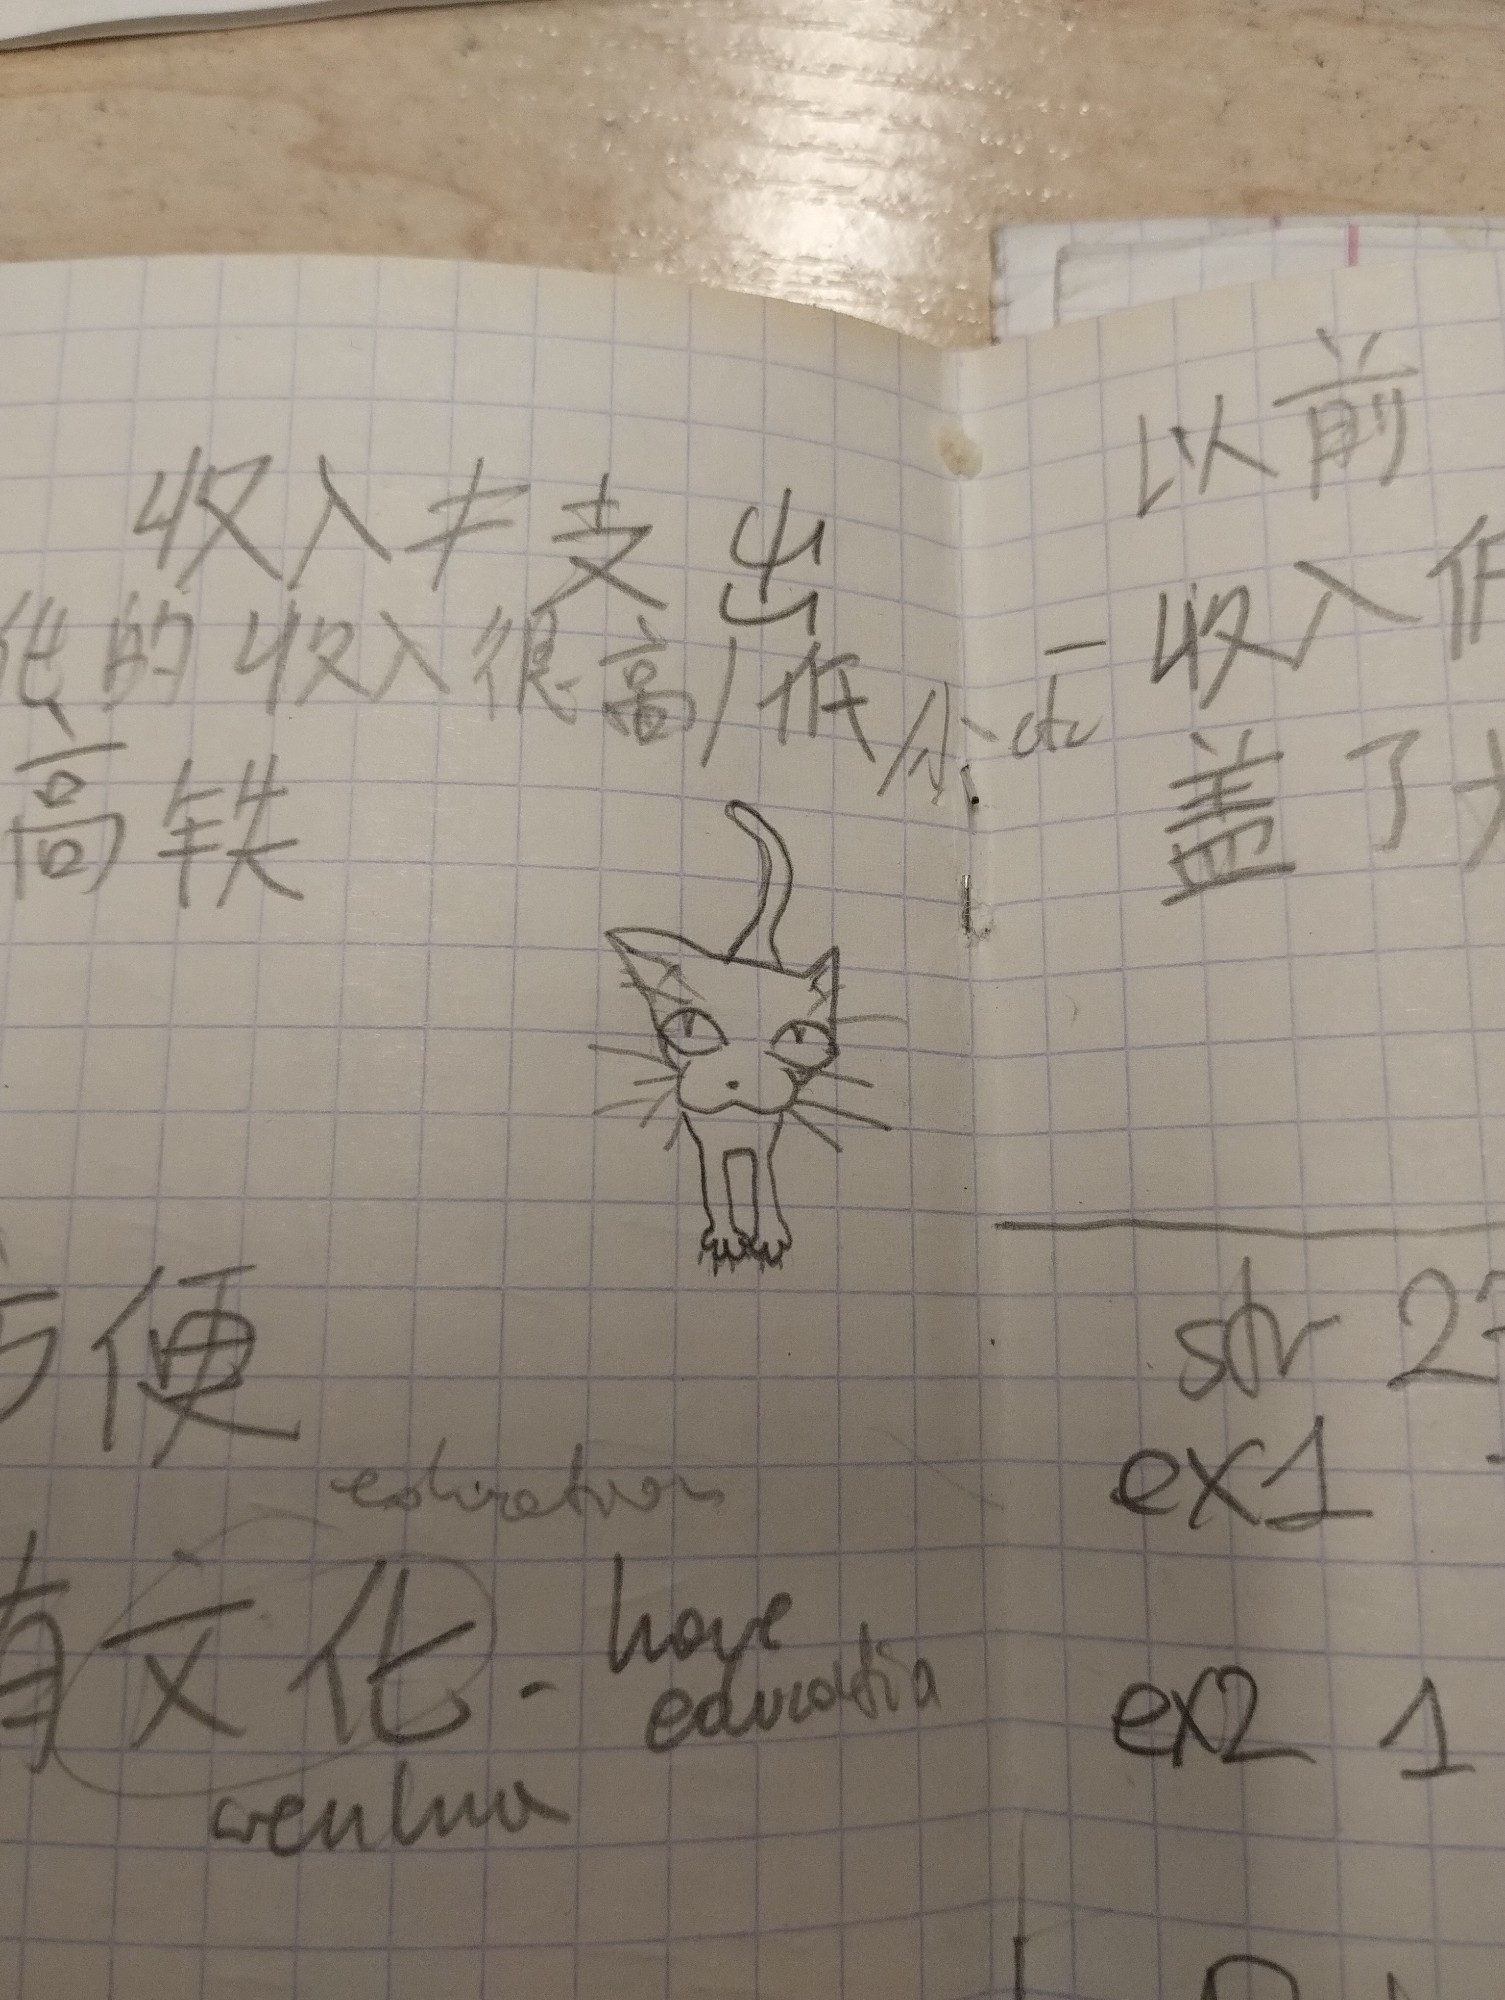 收入≠支出
的收入很高/低/小 etc
高铁
方便
education
有文化 - have
educatia
wenhua
以前
收入低
盖了
str 27
ex1
ex2 1